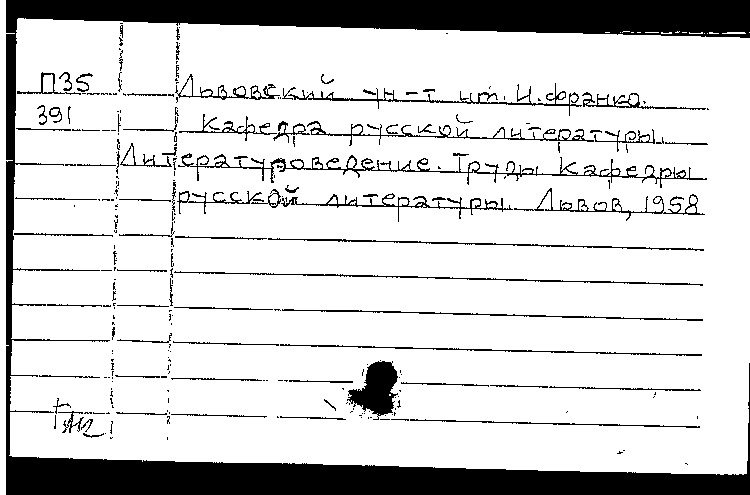 П35 Львовский ун-т им. И. Франко.
391 Кафедра русской литературы.
Литературоведение. Труды кафедры
русской литературы. Львов, 1958